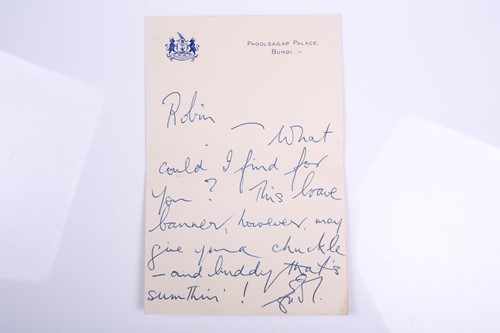 PHOOLSAGAR PALACE,
BUNDI.
Robin
— What
could I find for
you? This brave
banner, however, may
give you a chuckle
— and buddy that's
sumthin'!